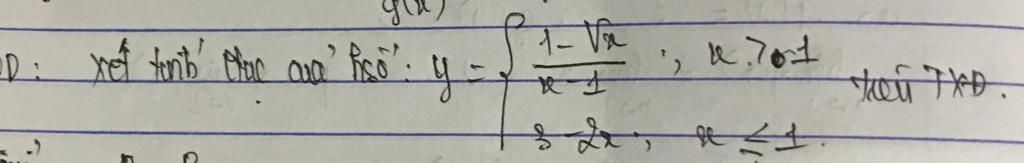 g(x)
D: xét tính ltục của hsố: y = { (1 - √x)/(x - 1) ; x > 1
3 - 2x ; x ≤ 1. trên TXD.